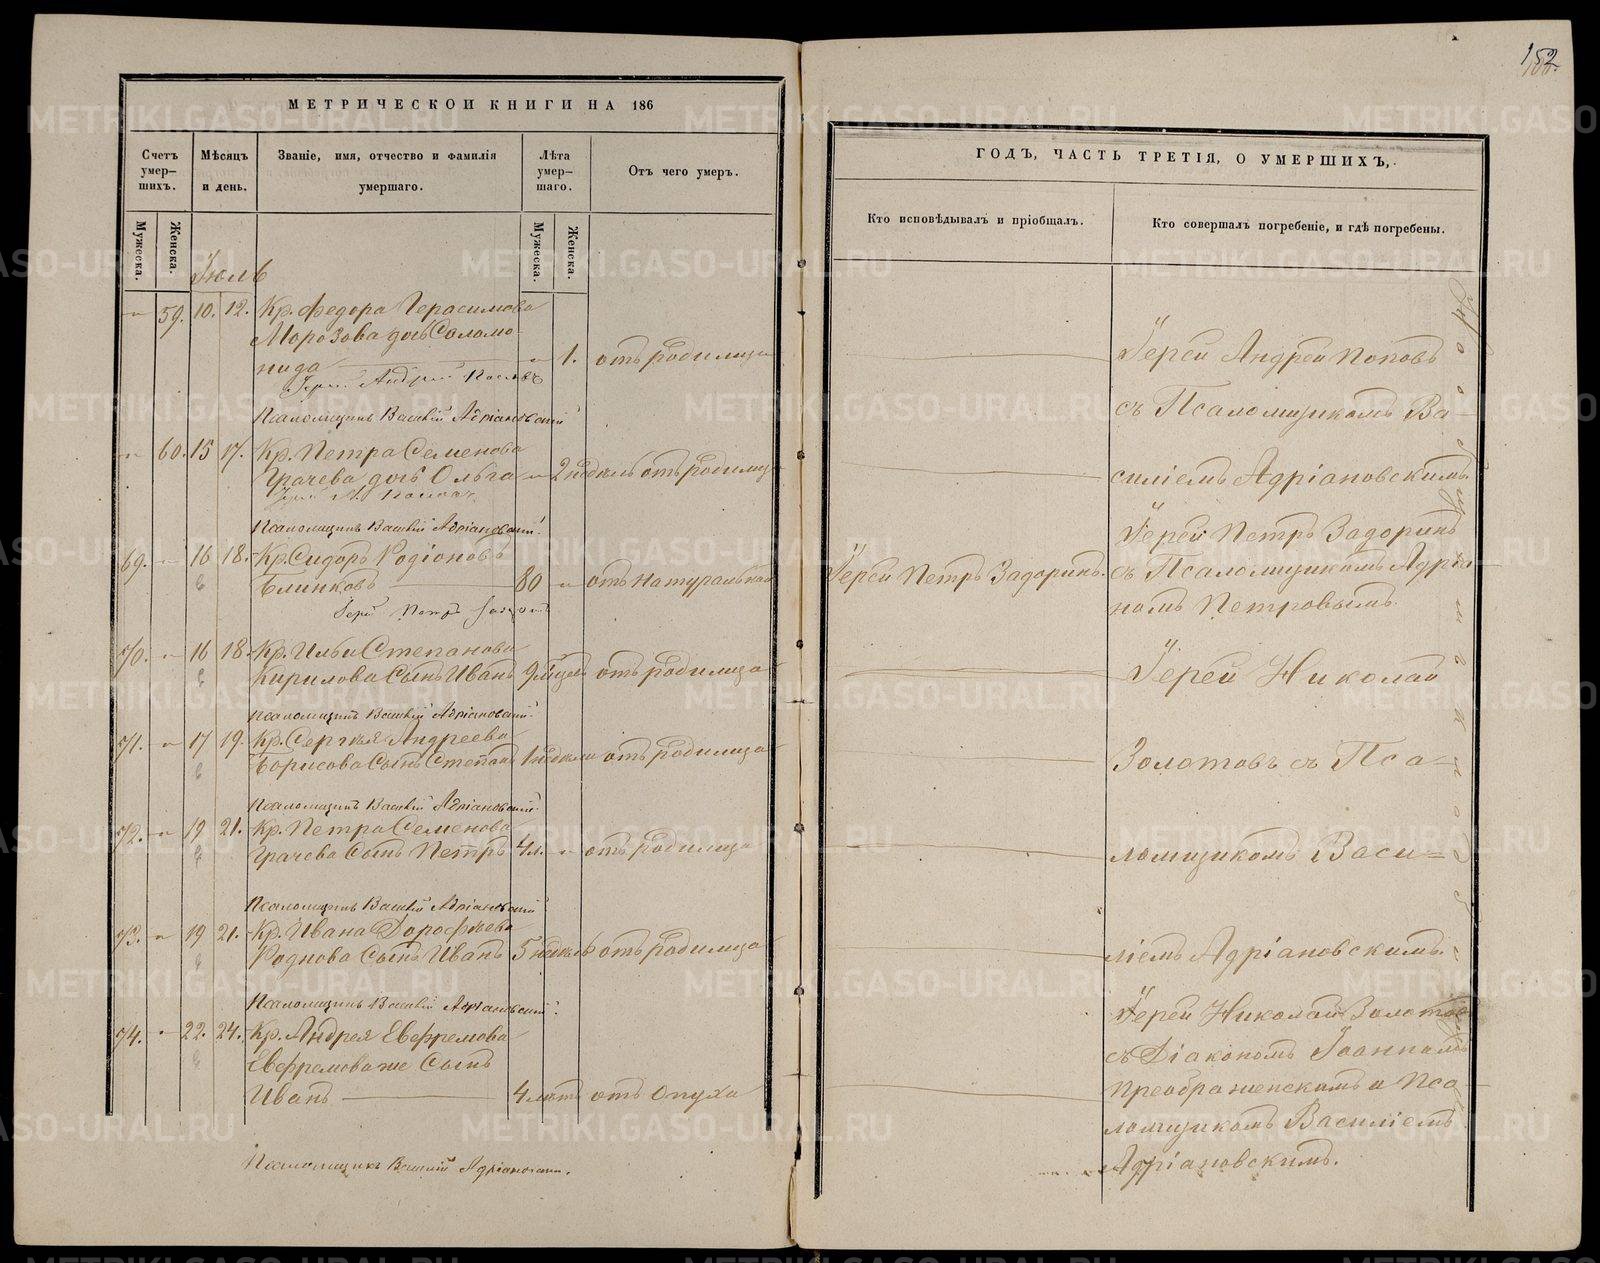 152
МЕТРИЧЕСКОЙ КНИГИ НА 186
Счетъ умер-
шихъ.
Мужеска.
Женска.
Мѣсяцъ
и день.
Званіе, имя, отчество и фамилія
умершаго.
Лѣта
умер-
шаго.
Мужеска.
Женска.
Отъ чего умеръ.
Іюль
59. 10. 12. Кр. Федора Герасимова
Морозова дочь Соломо-
нида 1. отъ родимца
Іерей Андрей Поповъ
Псаломщикъ Василій Адріановскій
60. 15 17. Кр. Петра Семенова
Грачева дочь Ольга 2 недель отъ родимца
Іерей А. Поповъ
Псаломщикъ Василій Адріановскій
69. 16 18. Кр. Сидоръ Родіоновъ
Блинковъ 80 отъ натуральной
Іерей Петръ Задоринъ
70. 16 18. Кр. Ильи Степанова
Кирилова Сынъ Иванъ 9 отъ родимца
Псаломщикъ Василій Адріановскій
71. 17 19. Кр. Сергѣя Андреева
Борисова Сынъ Степанъ 1 недели отъ родимца
Псаломщикъ Василій Адріановскій
72. 19 21. Кр. Петра Семенова
Грачева Сынъ Петръ 4 л. отъ родимца
Псаломщикъ Василій Адріановскій
73. 19 21. Кр. Ивана Дорофѣева
Роднова Сынъ Иванъ 5 недель отъ родимца
Псаломщикъ Василій Адріановскій
74. 22. 24. Кр. Андрея Евфремова
Евфремова же Сынъ
Иванъ 4 лѣтъ отъ опуха
Псаломщикъ Василій Адріановскій.
ГОДЪ, ЧАСТЬ ТРЕТІЯ, О УМЕРШИХЪ,
Кто исповѣдывалъ и пріобщалъ.
Кто совершалъ погребеніе, и гдѣ погребены.
Іерей Андрей Поповъ
съ Псаломщикомъ Ва-
силіемъ Адріановскимъ
Іерей Петръ Задоринъ
Іерей Петръ Задоринъ. съ Псаломщикомъ Адріа
номъ Петровымъ.
Іерей Николай
Золотовъ съ Пса-
ломщикомъ Васи-
ліемъ Адріановскимъ.
Іерей Николай Золотовъ
съ Діакономъ Іоанномъ
Преображенскимъ и Пса-
ломщикомъ Василіемъ
Адріановскимъ.
METRIKI.GASO-URAL.RU